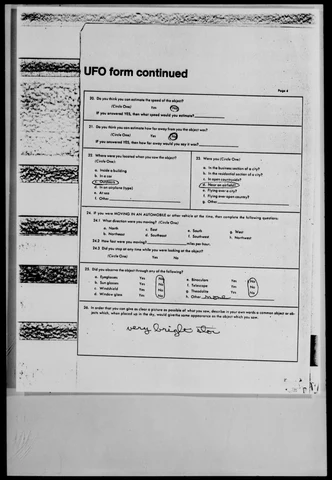 UFO form continued
Page 4
20. Do you think you can estimate the speed of the object?
(Circle One) Yes No
If you answered YES, then what speed would you estimate?
21. Do you think you can estimate how far away from you the object was?
(Circle One) Yes No
If you answered YES, then how far away would you say it was?
22. Where were you located when you saw the object?
(Circle One)
a. Inside a building
b. In a car
c. Outdoors
d. In an airplane (type)
e. At sea
f. Other
23. Were you (Circle One)
a. In the business section of a city?
b. In the residential section of a city?
c. In open countryside?
d. Near an airfield?
e. Flying over a city?
f. Flying over open country?
g. Other
24. If you were MOVING IN AN AUTOMOBILE or other vehicle at the time, then complete the following questions:
24.1 What direction were you moving? (Circle One)
a. North c. East e. South g. West
b. Northeast d. Southeast f. Southwest h. Northwest
24.2 How fast were you moving? miles per hour.
24.3 Did you stop at any time while you were looking at the object?
(Circle One) Yes No
25. Did you observe the object through any of the following?
a. Eyeglasses Yes No e. Binoculars Yes No
b. Sun glasses Yes No f. Telescope Yes No
c. Windshield Yes No g. Theodolite Yes No
d. Window glass Yes No h. Other none
26. In order that you can give as clear a picture as possible of what you saw, describe in your own words a common object or objects which, when placed up in the sky, would give the same appearance as the object which you saw.
very bright star